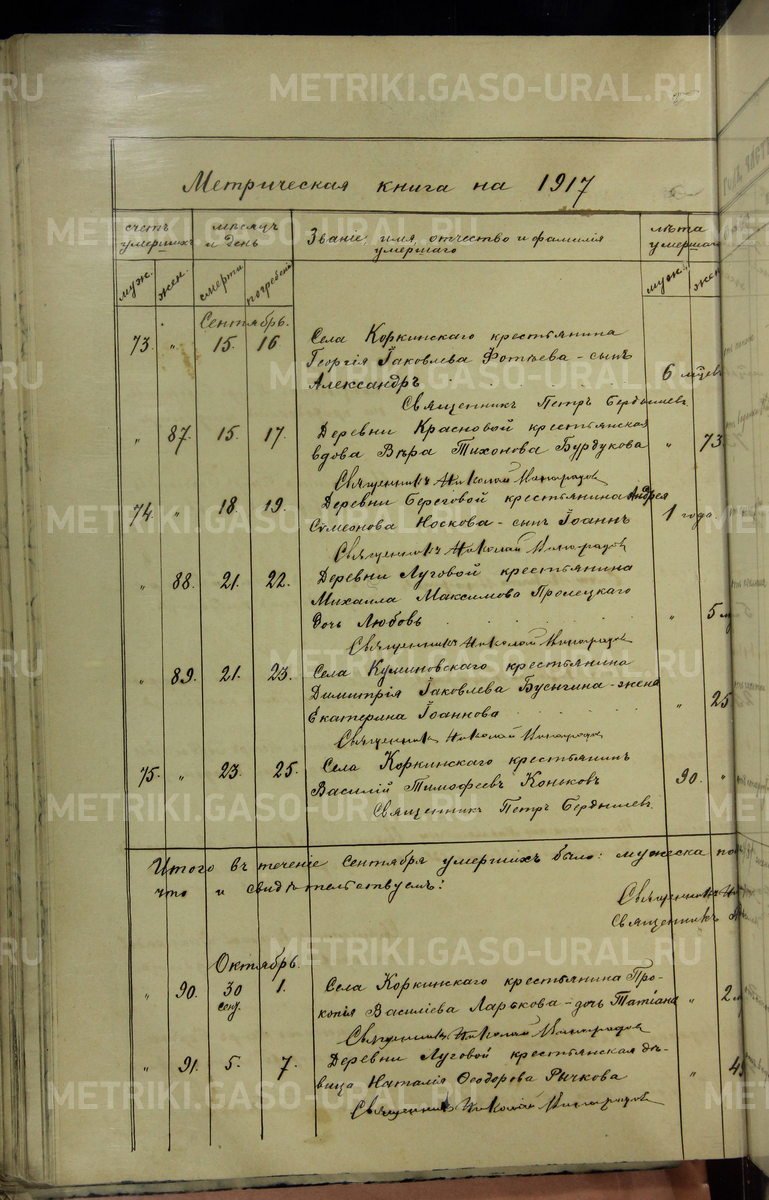 METRIKI.GASO-URAL.RU
Метрическая книга на 1917
счетъ умершихъ
мѣсяцъ и день
Званіе, имя, отчество и фамилія умершаго
лѣта умершаго
муж.
жен.
смерти
погребенія
муж.
жен.
Сентябрь.
73. " 15. 16 Села Коркинскаго крестьянина
Георгія Іаковлева Фотѣева - сынъ
Александръ 6 мѣсев
Священникъ Петръ Бердышевъ
" 87. 15. 17. Деревни Красновой крестьянская
вдова Вѣра Тихонова Бурдукова " 73
Священникъ Николай Виноградов
74. " 18. 19. Деревни Береговой крестьянина Андрея
Симеонова Носкова - сынъ Іоаннъ 1 года.
Священникъ Николай Виноградов
" 88. 21. 22. Деревни Луговой крестьянина
Михаила Максимова Пролецкаго
дочь Любовь " 5
Священникъ Николай Виноградов
" 89. 21. 23. Села Куминовскаго крестьянина
Димитрія Іаковлева Бусыгина - жена
Екатерина Іоаннова " 25
Священникъ Николай Виноградов
75. " 23. 25. Села Коркинскаго крестьянинъ
Василій Тимофеевъ Коньковъ 90. "
Священникъ Петръ Бердышевъ
Итого въ теченіе Сентября умершихъ было: мужеска по
что и свидѣтельствуемъ:
Священникъ
Священникъ
Октябрь.
" 90. 30 сент. 1. Села Коркинскаго крестьянина Про-
копія Василіева Ларькова - дочь Татіана " 2
Священникъ Николай Виноградов
" 91. 5. 7. Деревни Луговой крестьянская дѣ-
вица Наталія Ѳеодорова Рычкова "
Священникъ Николай Виноградов